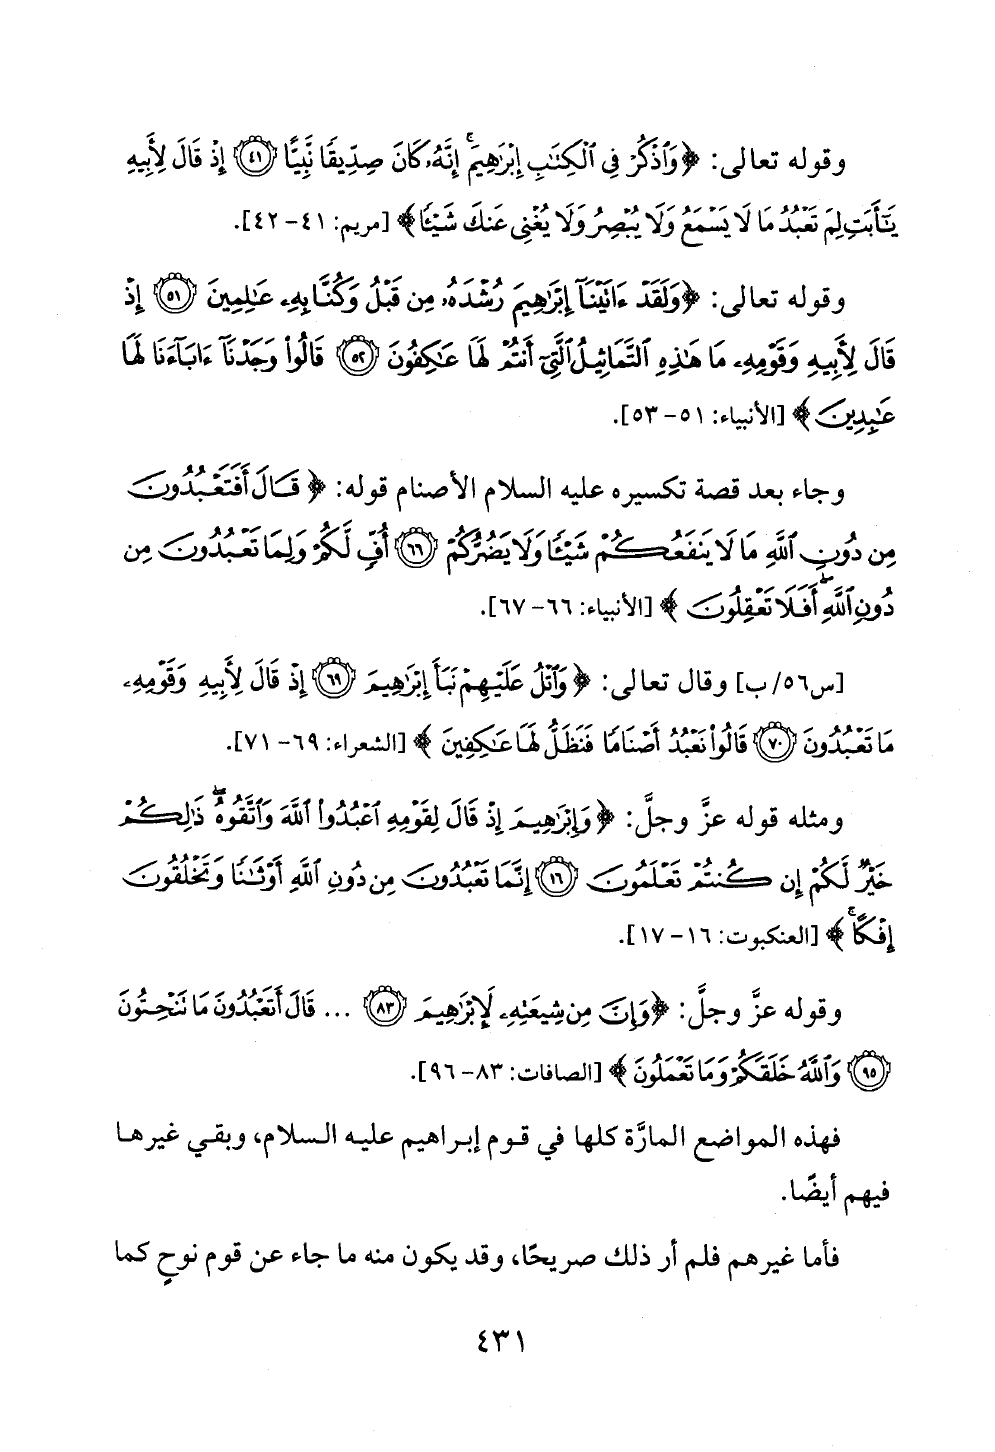 وقوله تعالى: ﴿وَٱذْكُرْ فِى ٱلْكِتَٰبِ إِبْرَٰهِيمَ ۚ إِنَّهُۥ كَانَ صِدِّيقًا نَّبِيًّا ٤١ إِذْ قَالَ لِأَبِيهِ
يَٰٓأَبَتِ لِمَ تَعْبُدُ مَا لَا يَسْمَعُ وَلَا يُبْصِرُ وَلَا يُغْنِى عَنكَ شَيْـًٔا﴾ [مريم: ٤١ - ٤٢].
وقوله تعالى: ﴿وَلَقَدْ ءَاتَيْنَآ إِبْرَٰهِيمَ رُشْدَهُۥ مِن قَبْلُ وَكُنَّا بِهِۦ عَٰلِمِينَ ٥١ إِذْ
قَالَ لِأَبِيهِ وَقَوْمِهِۦ مَا هَٰذِهِ ٱلتَّمَاثِيلُ ٱلَّتِىٓ أَنتُمْ لَهَا عَٰكِفُونَ ٥٢ قَالُوا۟ وَجَدْنَآ ءَابَآءَنَا لَهَا
عَٰبِدِينَ﴾ [الأنبياء: ٥١ - ٥٣].
وجاء بعد قصة تكسيره عليه السلام الأصنام قوله: ﴿قَالَ أَفَتَعْبُدُونَ
مِن دُونِ ٱللَّهِ مَا لَا يَنفَعُكُمْ شَيْـًٔا وَلَا يَضُرُّكُمْ ٦٦ أُفٍّ لَّكُمْ وَلِمَا تَعْبُدُونَ مِن
دُونِ ٱللَّهِ ۖ أَفَلَا تَعْقِلُونَ﴾ [الأنبياء: ٦٦ - ٦٧].
[س٥٦/ب] وقال تعالى: ﴿وَٱتْلُ عَلَيْهِمْ نَبَأَ إِبْرَٰهِيمَ ٦٩ إِذْ قَالَ لِأَبِيهِ وَقَوْمِهِۦ
مَا تَعْبُدُونَ ٧٠ قَالُوا۟ نَعْبُدُ أَصْنَامًا فَنَظَلُّ لَهَا عَٰكِفِينَ﴾ [الشعراء: ٦٩ - ٧١].
ومثله قوله عزَّ وجلَّ: ﴿وَإِبْرَٰهِيمَ إِذْ قَالَ لِقَوْمِهِ ٱعْبُدُوا۟ ٱللَّهَ وَٱتَّقُوهُ ۖ ذَٰلِكُمْ
خَيْرٌ لَّكُمْ إِن كُنتُمْ تَعْلَمُونَ ١٦ إِنَّمَا تَعْبُدُونَ مِن دُونِ ٱللَّهِ أَوْثَٰنًا وَتَخْلُقُونَ
إِفْكًا ۚ﴾ [العنكبوت: ١٦ - ١٧].
وقوله عزَّ وجلَّ: ﴿وَإِنَّ مِن شِيعَتِهِۦ لَإِبْرَٰهِيمَ ٨٣ ... قَالَ أَتَعْبُدُونَ مَا تَنْحِتُونَ
٩٥ وَٱللَّهُ خَلَقَكُمْ وَمَا تَعْمَلُونَ﴾ [الصافات: ٨٣ - ٩٦].
فهذه المواضع المارَّة كلها في قوم إبراهيم عليه السلام، وبقي غيرها
فيهم أيضًا.
فأما غيرهم فلم أر ذلك صريحًا، وقد يكون منه ما جاء عن قوم نوحٍ كما
٤٣١